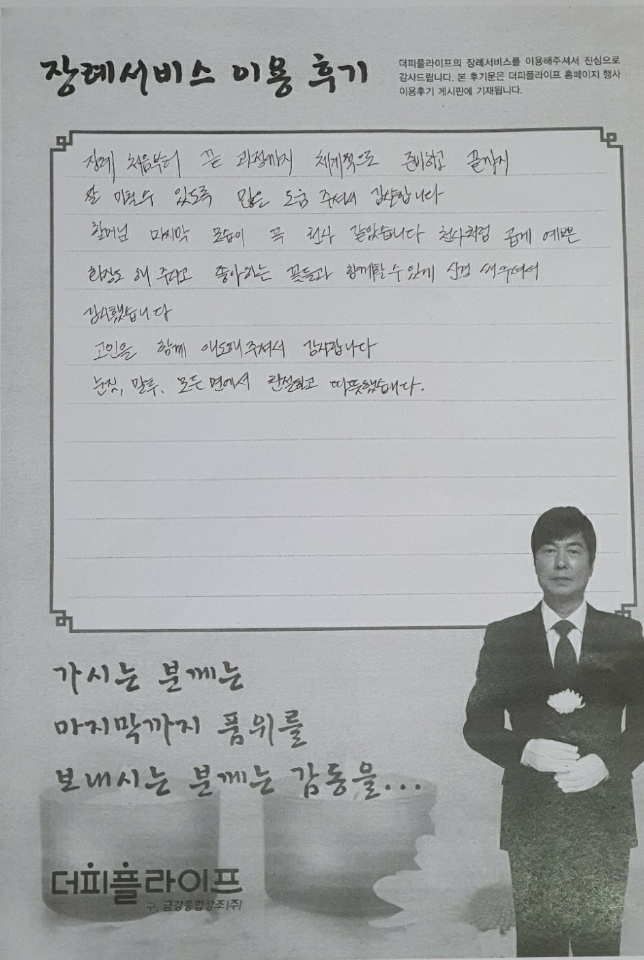 장례서비스 이용 후기
더피플라이프의 장례서비스를 이용해주셔서 진심으로
감사드립니다. 본 후기문은 더피플라이프 홈페이지 행사
이용후기 게시판에 기재됩니다.
장례 처음부터 끝 과정까지 체계적으로 준비하고 끝까지
잘 미칠수 있도록 많은 도움 주셔서 감사합니다
할머님 마지막 모습이 꼭 천사 같았습니다 천사처럼 곱게 예쁜
화장도 해 주시고 좋아하는 꽃들과 함께할 수 있게 신경 써주셔서
감사했습니다
고인을 함께 애도해주셔서 감사합니다
눈짓, 말투, 모든 면에서 친절하고 따뜻했습니다.
가시는 분께는
마지막까지 품위를
보내시는 분께는 감동을...
더피플라이프
구. 금강종합상조(주)